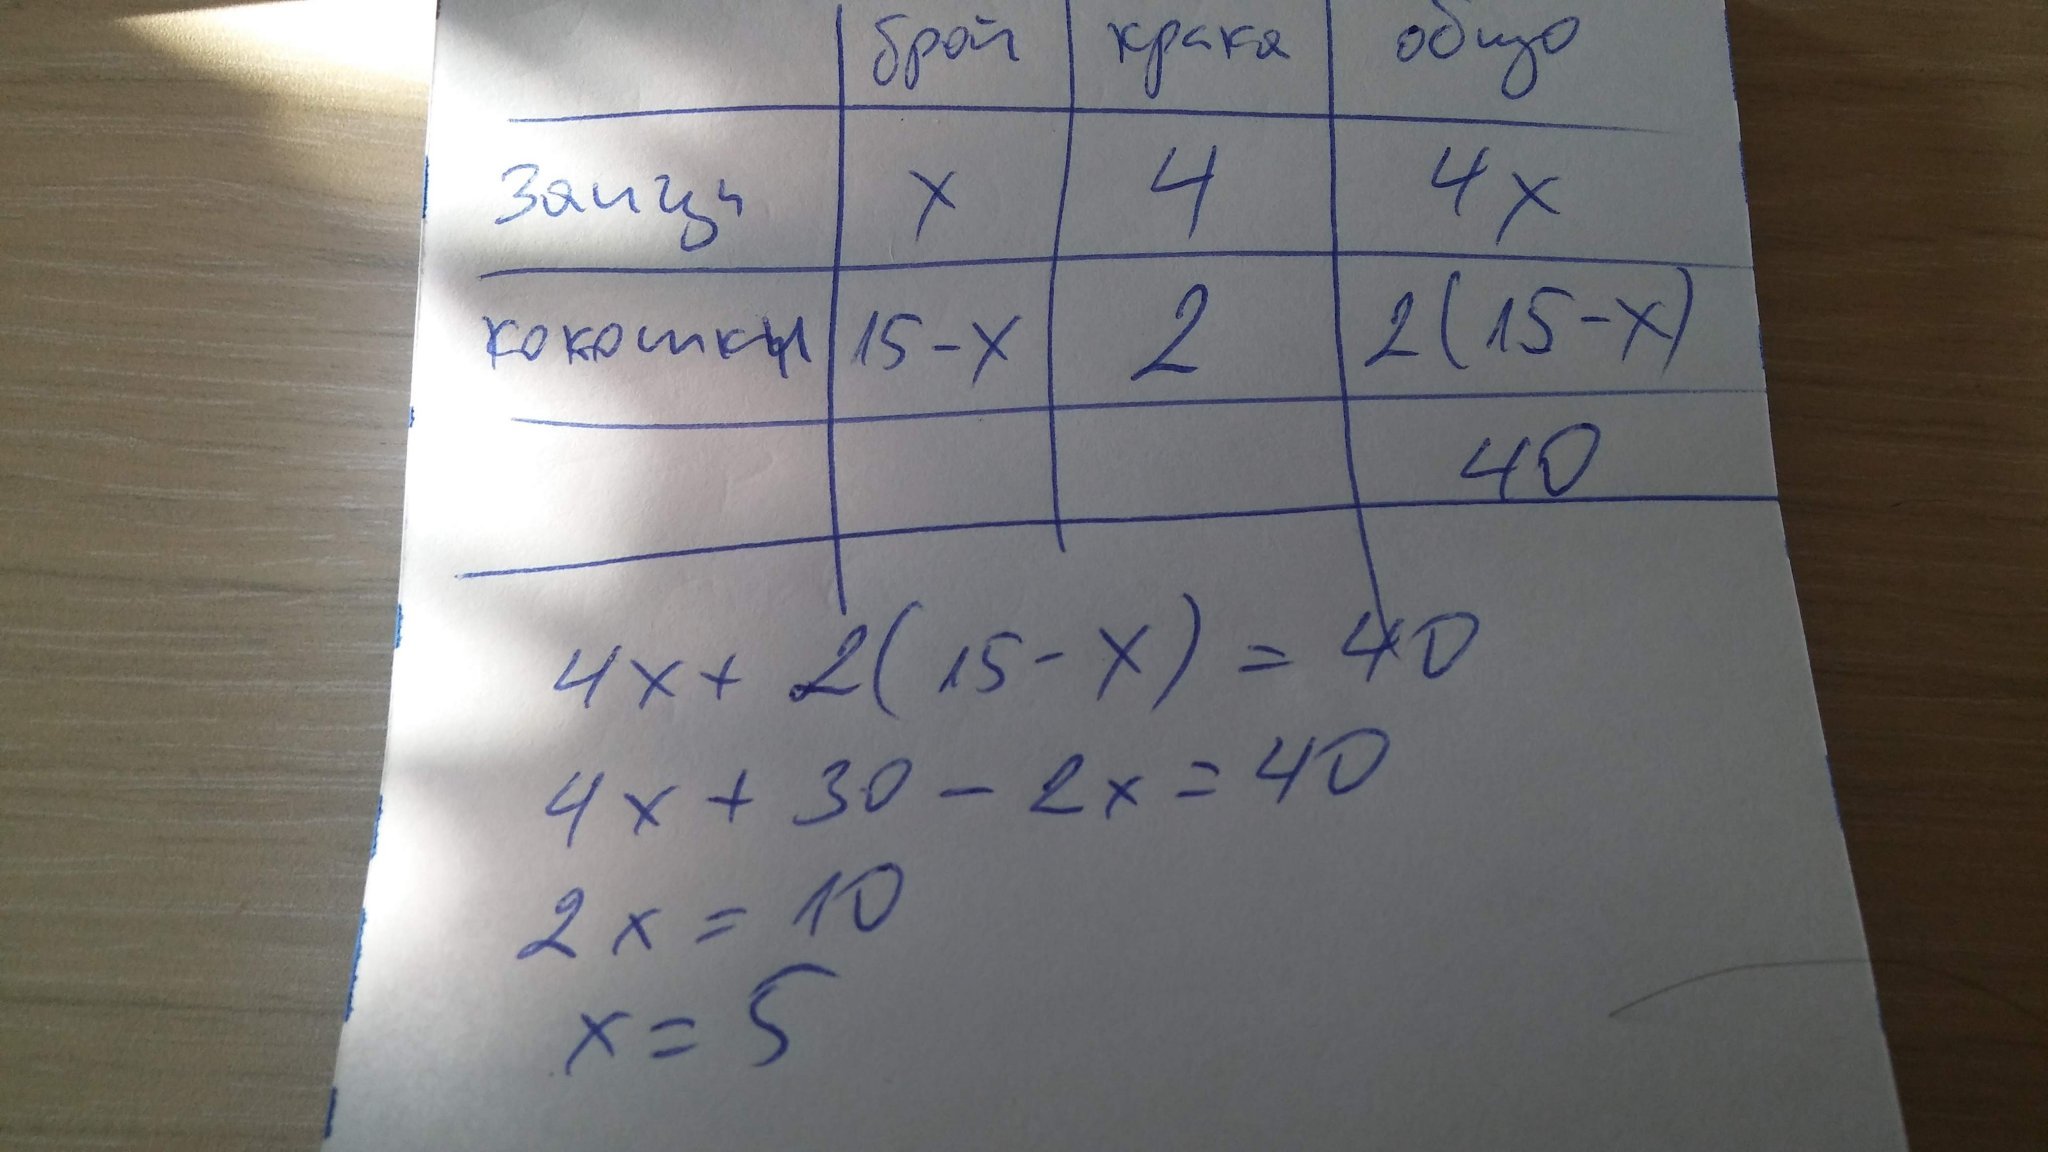 брой крака общо
Зайци x 4 4x
кокошки 15-x 2 2(15-x)
40
4x + 2(15-x) = 40
4x + 30 - 2x = 40
2x = 10
x = 5